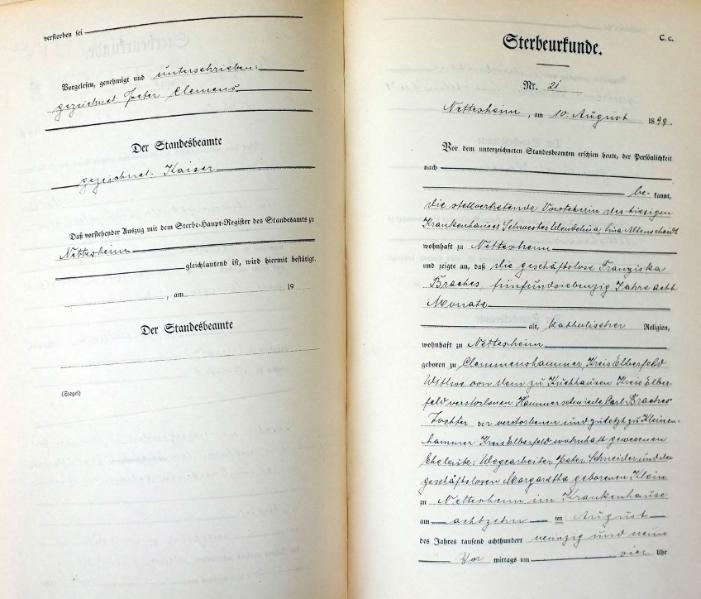 verstorben sei
Vorgelesen, genehmigt und unterschrieben.
gezeichnet Peter Clemens
Der Standesbeamte
gezeichnet. Kaiser
Daß vorstehender Auszug mit dem Sterbe-Haupt-Register des Standesamts zu
Nettersheim
gleichlautend ist, wird hiermit bestätigt.
, am 19
Der Standesbeamte
(Siegel)
C. c.
Sterbeurkunde.
Nr. 21
Nettersheim, am 10. August 1899.
Vor dem unterzeichneten Standesbeamten erschien heute, der Persönlichkeit
nach
be- kannt,
die stellvertretende Vorsteherin des hiesigen
Krankenhauses Schwester
wohnhaft zu Nettersheim
und zeigte an, daß die geschäftslose Franziska
Braches fünfundsiebenzig Jahre acht
Monate
alt, katholischer Religion,
wohnhaft zu Nettersheim
geboren zu Clemenshammer, Kreis Elberfeld
Wittwe von dem zu Kreis Elber-
feld verstorbenen Hammerschmiede Carl Braches
Tochter der verstorbenen und zuletzt zu
hammer Kreis Elberfeld wohnhaft gewesenen
Eheleute: Wegearbeiter Peter Schneider und der
geschäftslosen Margaretha geborenen Klein
zu Nettersheim im Krankenhause
am achtzehn ten August
des Jahres tausend achthundert neunzig und neun
Vor mittags um vier Uhr